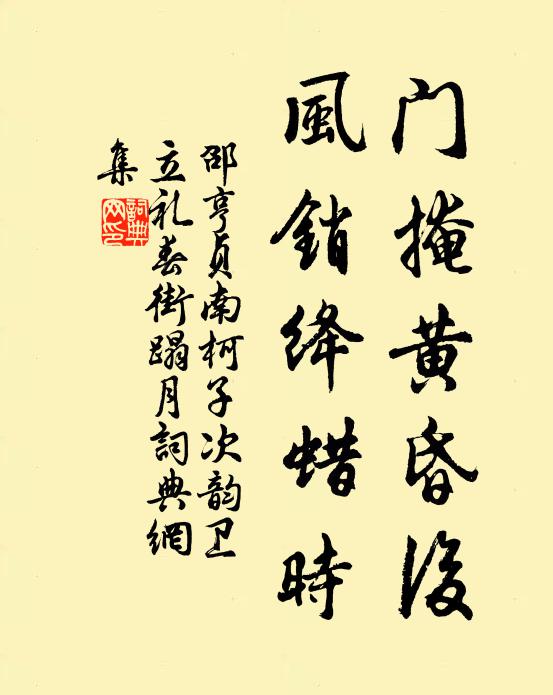 门掩黄昏後
風銷绛蜡時
邵亨贞南柯子次韵卫
立礼春街蹋月詞典網
集
詞典網印